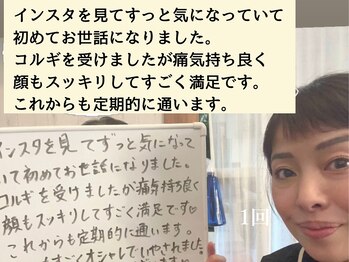 インスタを見てすっと気になっていて
初めてお世話になりました。
コルギを受けましたが痛気持ち良く
顔もスッキリしてすごく満足です。
これからも定期的に通います。
インスタを見てずっと気になって
いて初めてお世話になりました。
コルギを受けましたが痛気持ち良く
顔もスッキリしてすごく満足です♡
これからも定期的に通います。
すごくオシャレでいやされました
1回